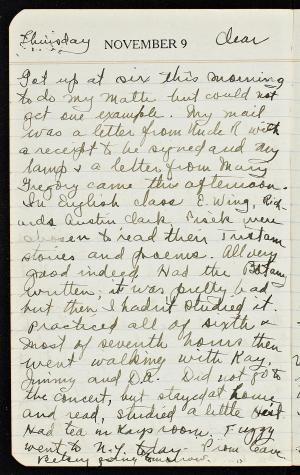 Thursday NOVEMBER 9 Clear
Got up at six this morning
to do my Math but could not
get one example. My mail
was a letter from Uncle R with
a receipt to be signed and my
lamp & a letter from Mary
Gregory came this afternoon.
In English class E. Wing, Rich-
ards Austin Clark Fisek were
chosen to read their Tristam
stories and poems. All very
good indeed. Had the Botany
written; it was pretty bad
but then I hadn't studied it.
Practiced all of sixth &
most of seventh hours then
went walking with Kay,
Jimmy and D.A. Did not go to
the concert, but stayed at house
and read, studied a little Hist.
Had tea in Kays room. Fuzzy
went to N.Y. today. Prom leave
Betsy going tomorrow.